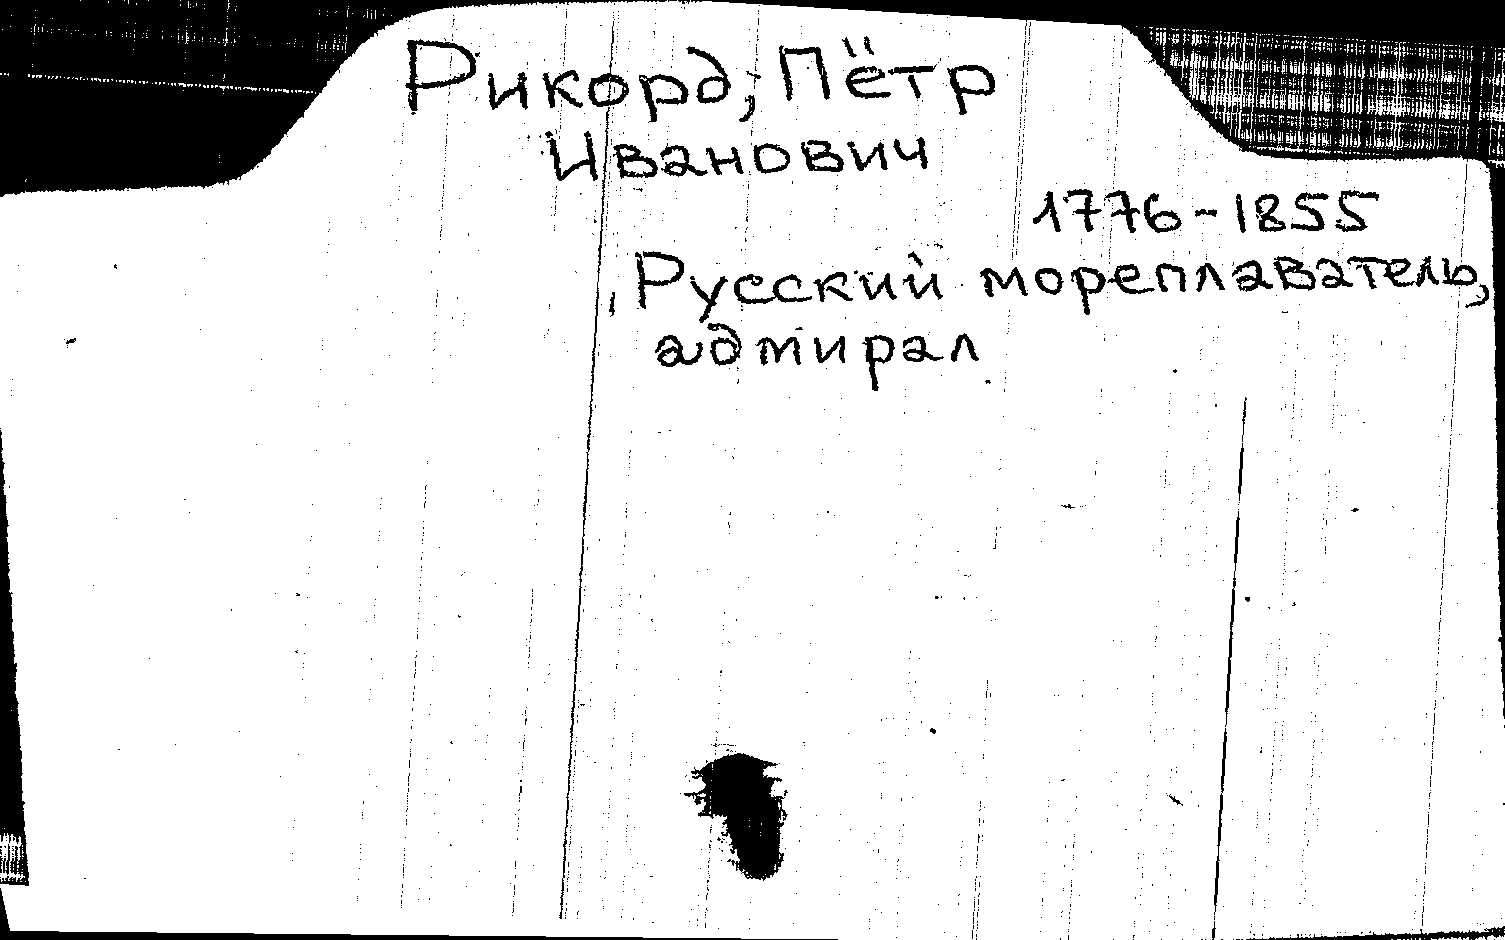 Рикорд, Пётр
Иванович
1776-1855
Русский мореплаватель,
адмирал